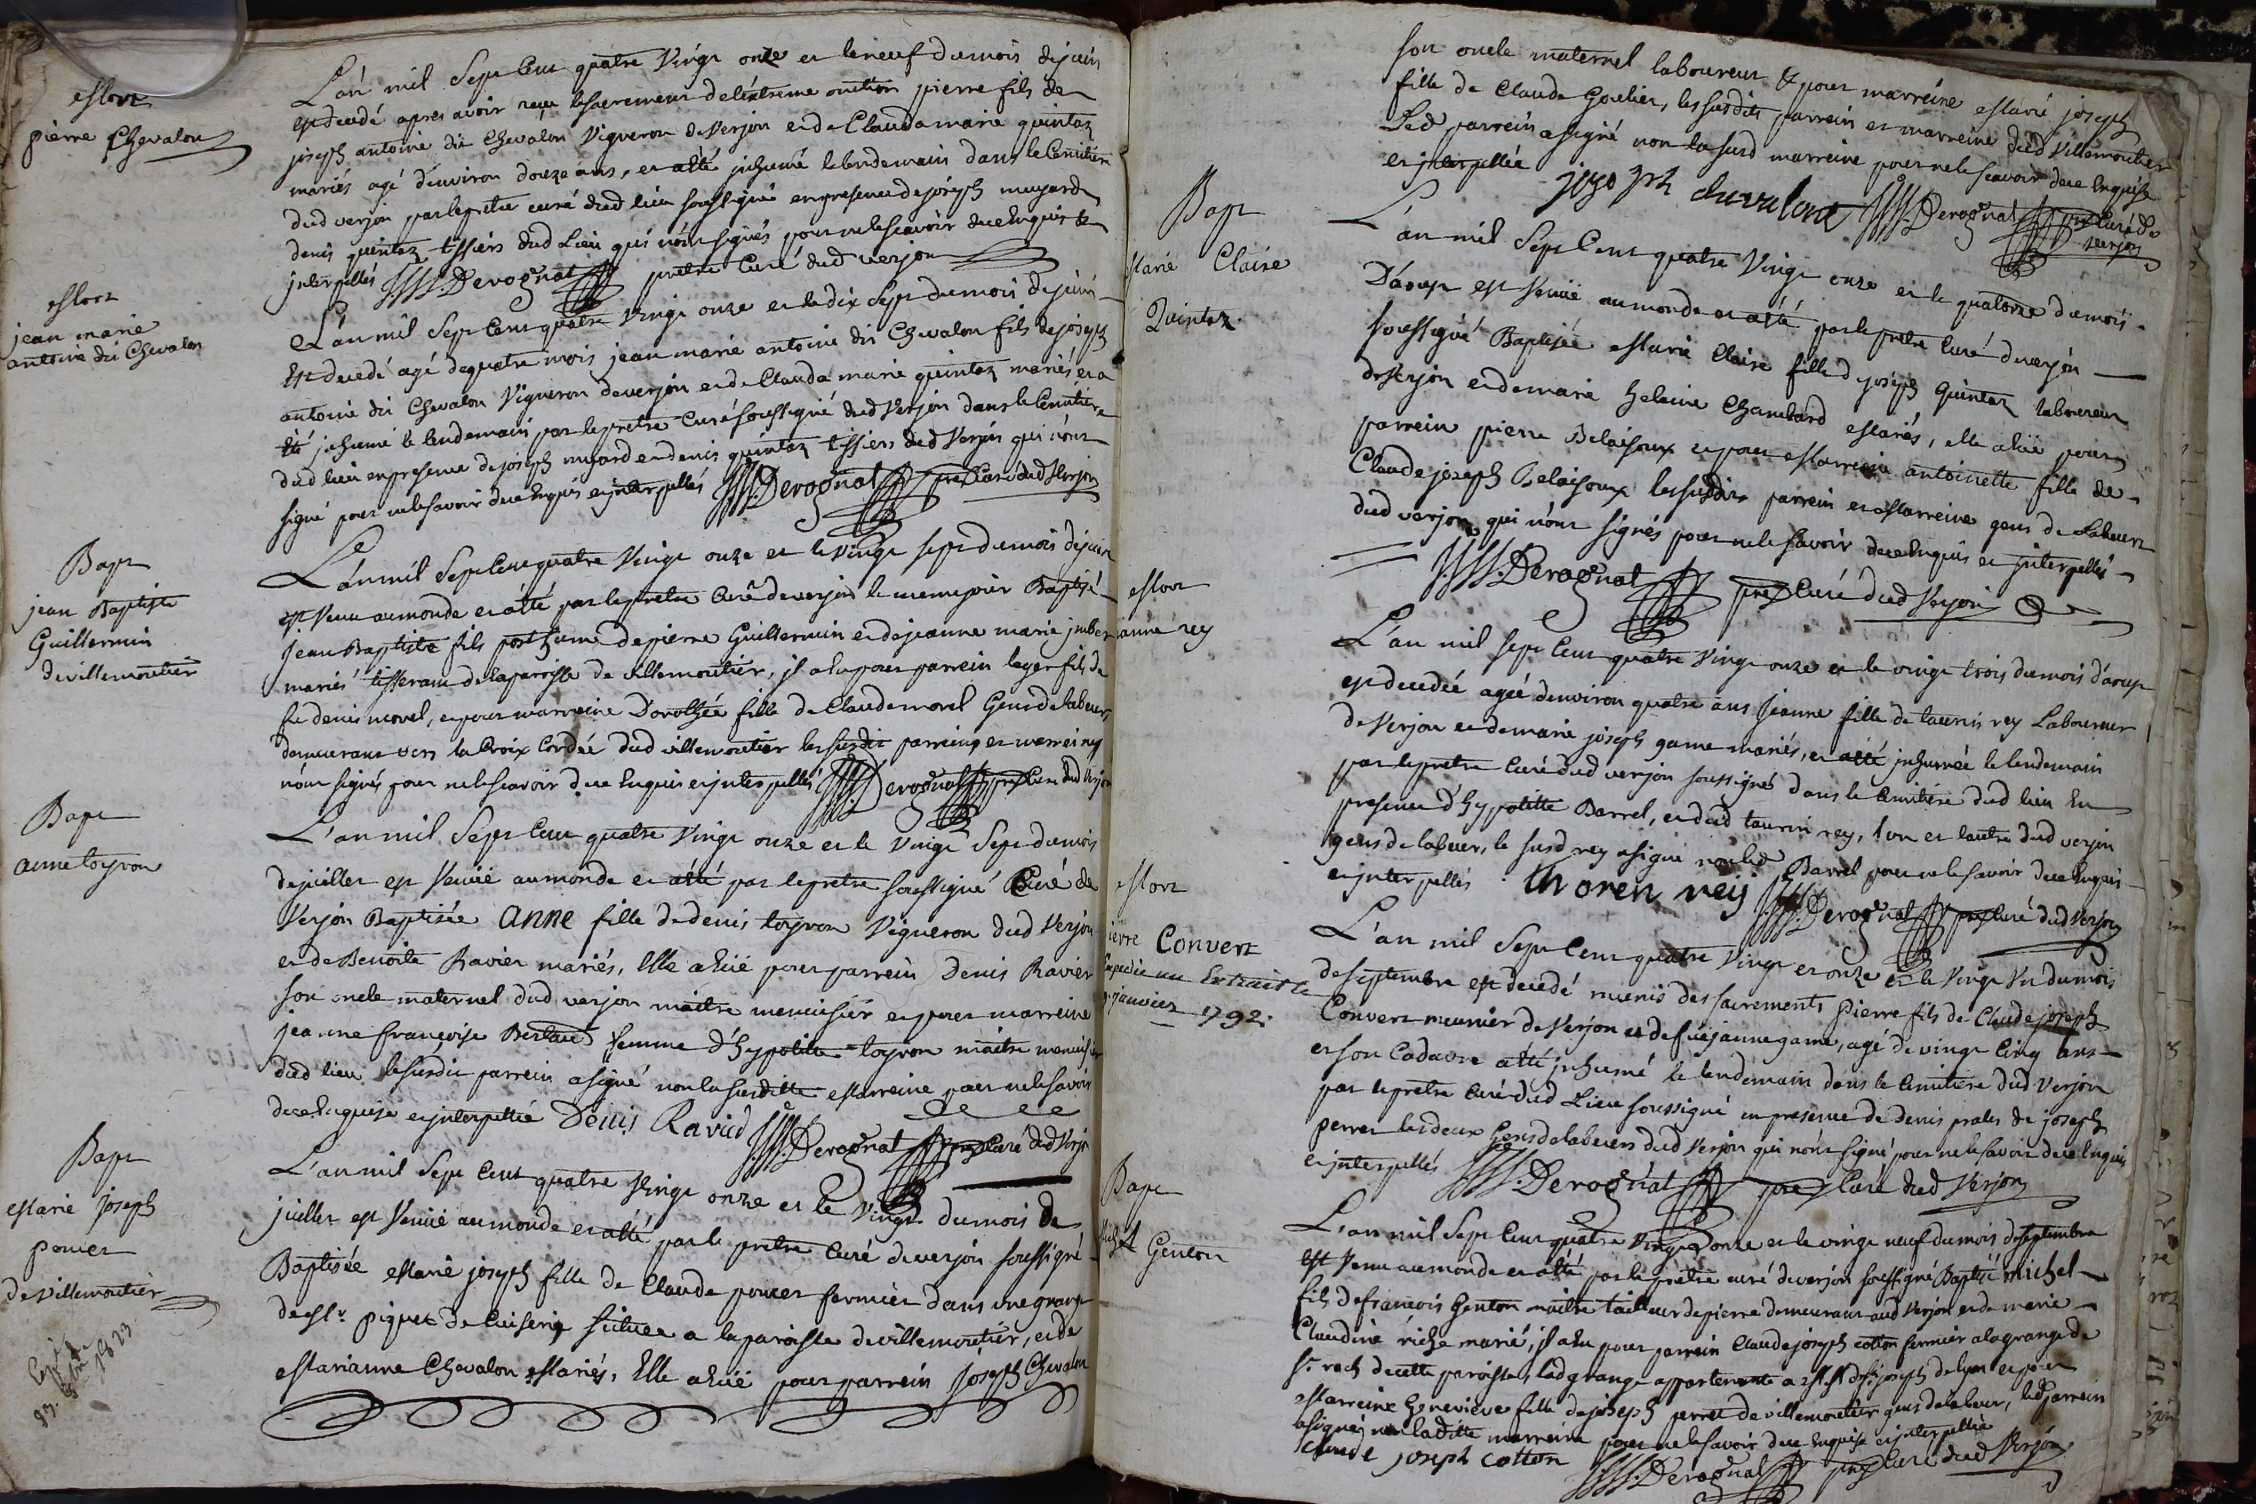 Mort
pierre Chevalon
L'an mil Sept Cent quatre Vingt onze et le neuf du mois de juin
est decedé apres avoir reçu le sacrement de l'extreme onction pierre fils de
joseph antoine dit Chevalon Vigneron de Verjon et de Clauda marie quintaz
mariés agé d'environ douze ans, et a été inhumé le lendemain dans le Cemitiere
dud verjon par le pretre curé dud lieu soussigné en presence de joseph mugard
denis quintaz tissiers dud Lieu qui n'ont signés pour ne le scavoir de ce Enquis et
interpellés Derognat pretre Curé dud verjon
Mort
jean marie
antoine dit Chevalon
L'an mil Sept Cent quatre Vingt onze et le dix Sept du mois de juin
Est decedé agé de quatre mois jean marie antoine dit Chevalon fils de joseph
antoine dit Chevalon Vigneron de verjon et de Clauda marie quintaz mariés et a
été inhumé le lendemain par le pretre Curé soussigné dud Verjon dans le Cemitiere
dud lieu en presence de joseph mugard et denis quintaz tissiers dud Verjon qui n'ont
signé pour ne le savoir de ce Enquis et interpellés Derognat pre Curé dud Verjon
Bapt
jean Baptiste
Guillermin
de villemoutier
L'an mil Sept Cent quatre Vingt onze et le vingt sept du mois de juin
est Venu au monde et a été par le pretre Curé de verjon le meme jour Baptisé
jean Baptiste fils posthume de pierre Guillermin et de jeanne marie jmber
mariés tisserant de la paroisse de villemoutier, il a eu pour parrein leger fils de
fu denis morel, et pour marreine Dorothée fille de Claude morel Gens de labeurs
demeurant vers la Croix Cordée dud villemoutier les susdit parrein et marreine
n'ont signés pour ne le scavoir de ce Enquis et interpellés Derognat pre Curé dud Verjon
Bapt
anne toyron
L'an mil Sept Cent quatre Vingt onze et le Vingt Sept du mois
de juillet est Venüe au monde et a été par le pretre soussigné Curé de
Verjon Baptisée Anne fille de denis toyron Vigneron dud Verjon
et de Benoite Ravier mariés, Elle a eüe pour parrein Denis Ravier
son oncle maternel dud verjon maitre menuisier et pour marreine
jeanne françoise Bertaud femme d'hypolitte toyron maitre menuisier
dud lieu, le susdit parrein a signé non la susditte Marreine pour ne le savoir
de ce Enquise et interpellée Denis Ravier Derognat pre Curé dud Verjon
Bapt
Marie joseph
poncet
de villemoutier
L'an mil Sept Cent quatre Vingt onze et le Vingt du mois de
juillet est Venüe au monde et a été par le pretre Curé de verjon soussigné
Baptisée Marie joseph fille de Claude poncet fermier dans une grange
de Mr. piquet de Cuisery située a la paroisse de villemoutier, et de
Marianne Chevalon Mariés, Elle a eüe pour parrein Joseph Chevalon
son oncle maternel laboureur & pour marreine Marie joseph
fille de Claude Goulier, les susdits parrein et marreine dud Villemoutier
Led parrein a signé non la susd marreine pour ne le scavoir de ce Enquise
et interpellée joso zph chevalont Derognat pre Curé de
verjon
Bapt
Marie Claire
Quintaz
L'an mil Sept Cent quatre Vingt onze et le quatorze du mois
D'aoust est Venüe au monde et a été par le pretre Curé de verjon
soussigné Baptisée Marie Claire fille de joseph quintaz laboureur
de Verjon et de marie helaine Chambard Mariés, elle a eüe pour
parrein pierre Belaisoux et pour Marreine antoinette fille de
Claude joseph Belaisoux les susdits parrein et Marreine gens de Labeurs
dud verjon qui n'ont signés pour ne le savoir de ce Enquis et interpellés
Derognat pre Curé dud Verjon
Mort
anne rey
L'an mil sept Cent quatre Vingt onze et le vingt trois du mois d'aoust
est decedée agée d'environ quatre ans Jeanne fille de taurin rey Laboureur
de Verjon et de marie joseph game mariés, et a été inhumée le lendemain
par le pretre Curé dud verjon soussigné dans le Cemitiere dud lieu En
presence d'hypolitte Barrel, et dud taurin rey, l'un et l'autre dud verjon
gens de labeur, le susd rey a signé non led Barrel pour ne le savoir de ce Enquis
et interpellés thoren rey Derognat pre Curé dud Verjon
Mort
ierre Convert
Expedié un Extrait le
janvier 1792.
L'an mil Sept Cent quatre Vingt et onze et le Vingt Un du mois
de septembre est decedé munis des sacrements Pierre fils de Claude joseph
Convert meunier de Verjon et de füe jeanne game, agé de vingt Cinq ans
et son Cadavre a été inhumé le lendemain dans le Cemitiere dud Verjon
par le pretre Curé dud Lieu soussigné en presence de denis prales de joseph
perret les deux Gens de labeurs dud Verjon qui n'ont signé pour ne le savoir de ce Enquis
et interpellés Derognat pre Curé dud Verjon
Bapt
Michel Genton
L'an mil Sept Cent quatre Vingt onze et le vingt neuf du mois de septembre
est Venu au monde et a été par le pretre curé de verjon soussigné Baptisé michel
fils de francois Genton maitre tailleur de pierre demeurant aud Verjon et de marie
Claudine riche marié, il a eu pour parrein Claude joseph cotton fermier a la grange de
St. roch de cette paroisse, lad grange appartenante a MM de St. joseph de lyon et pour
Marreine Genevieve fille de joseph perret de villemoutier gens de labeur, led parrein
a signé, non laditte marreine pour ne le savoir de ce Enquise et interpellée
claude joseph cotton
Derognat pre Curé dud Verjon